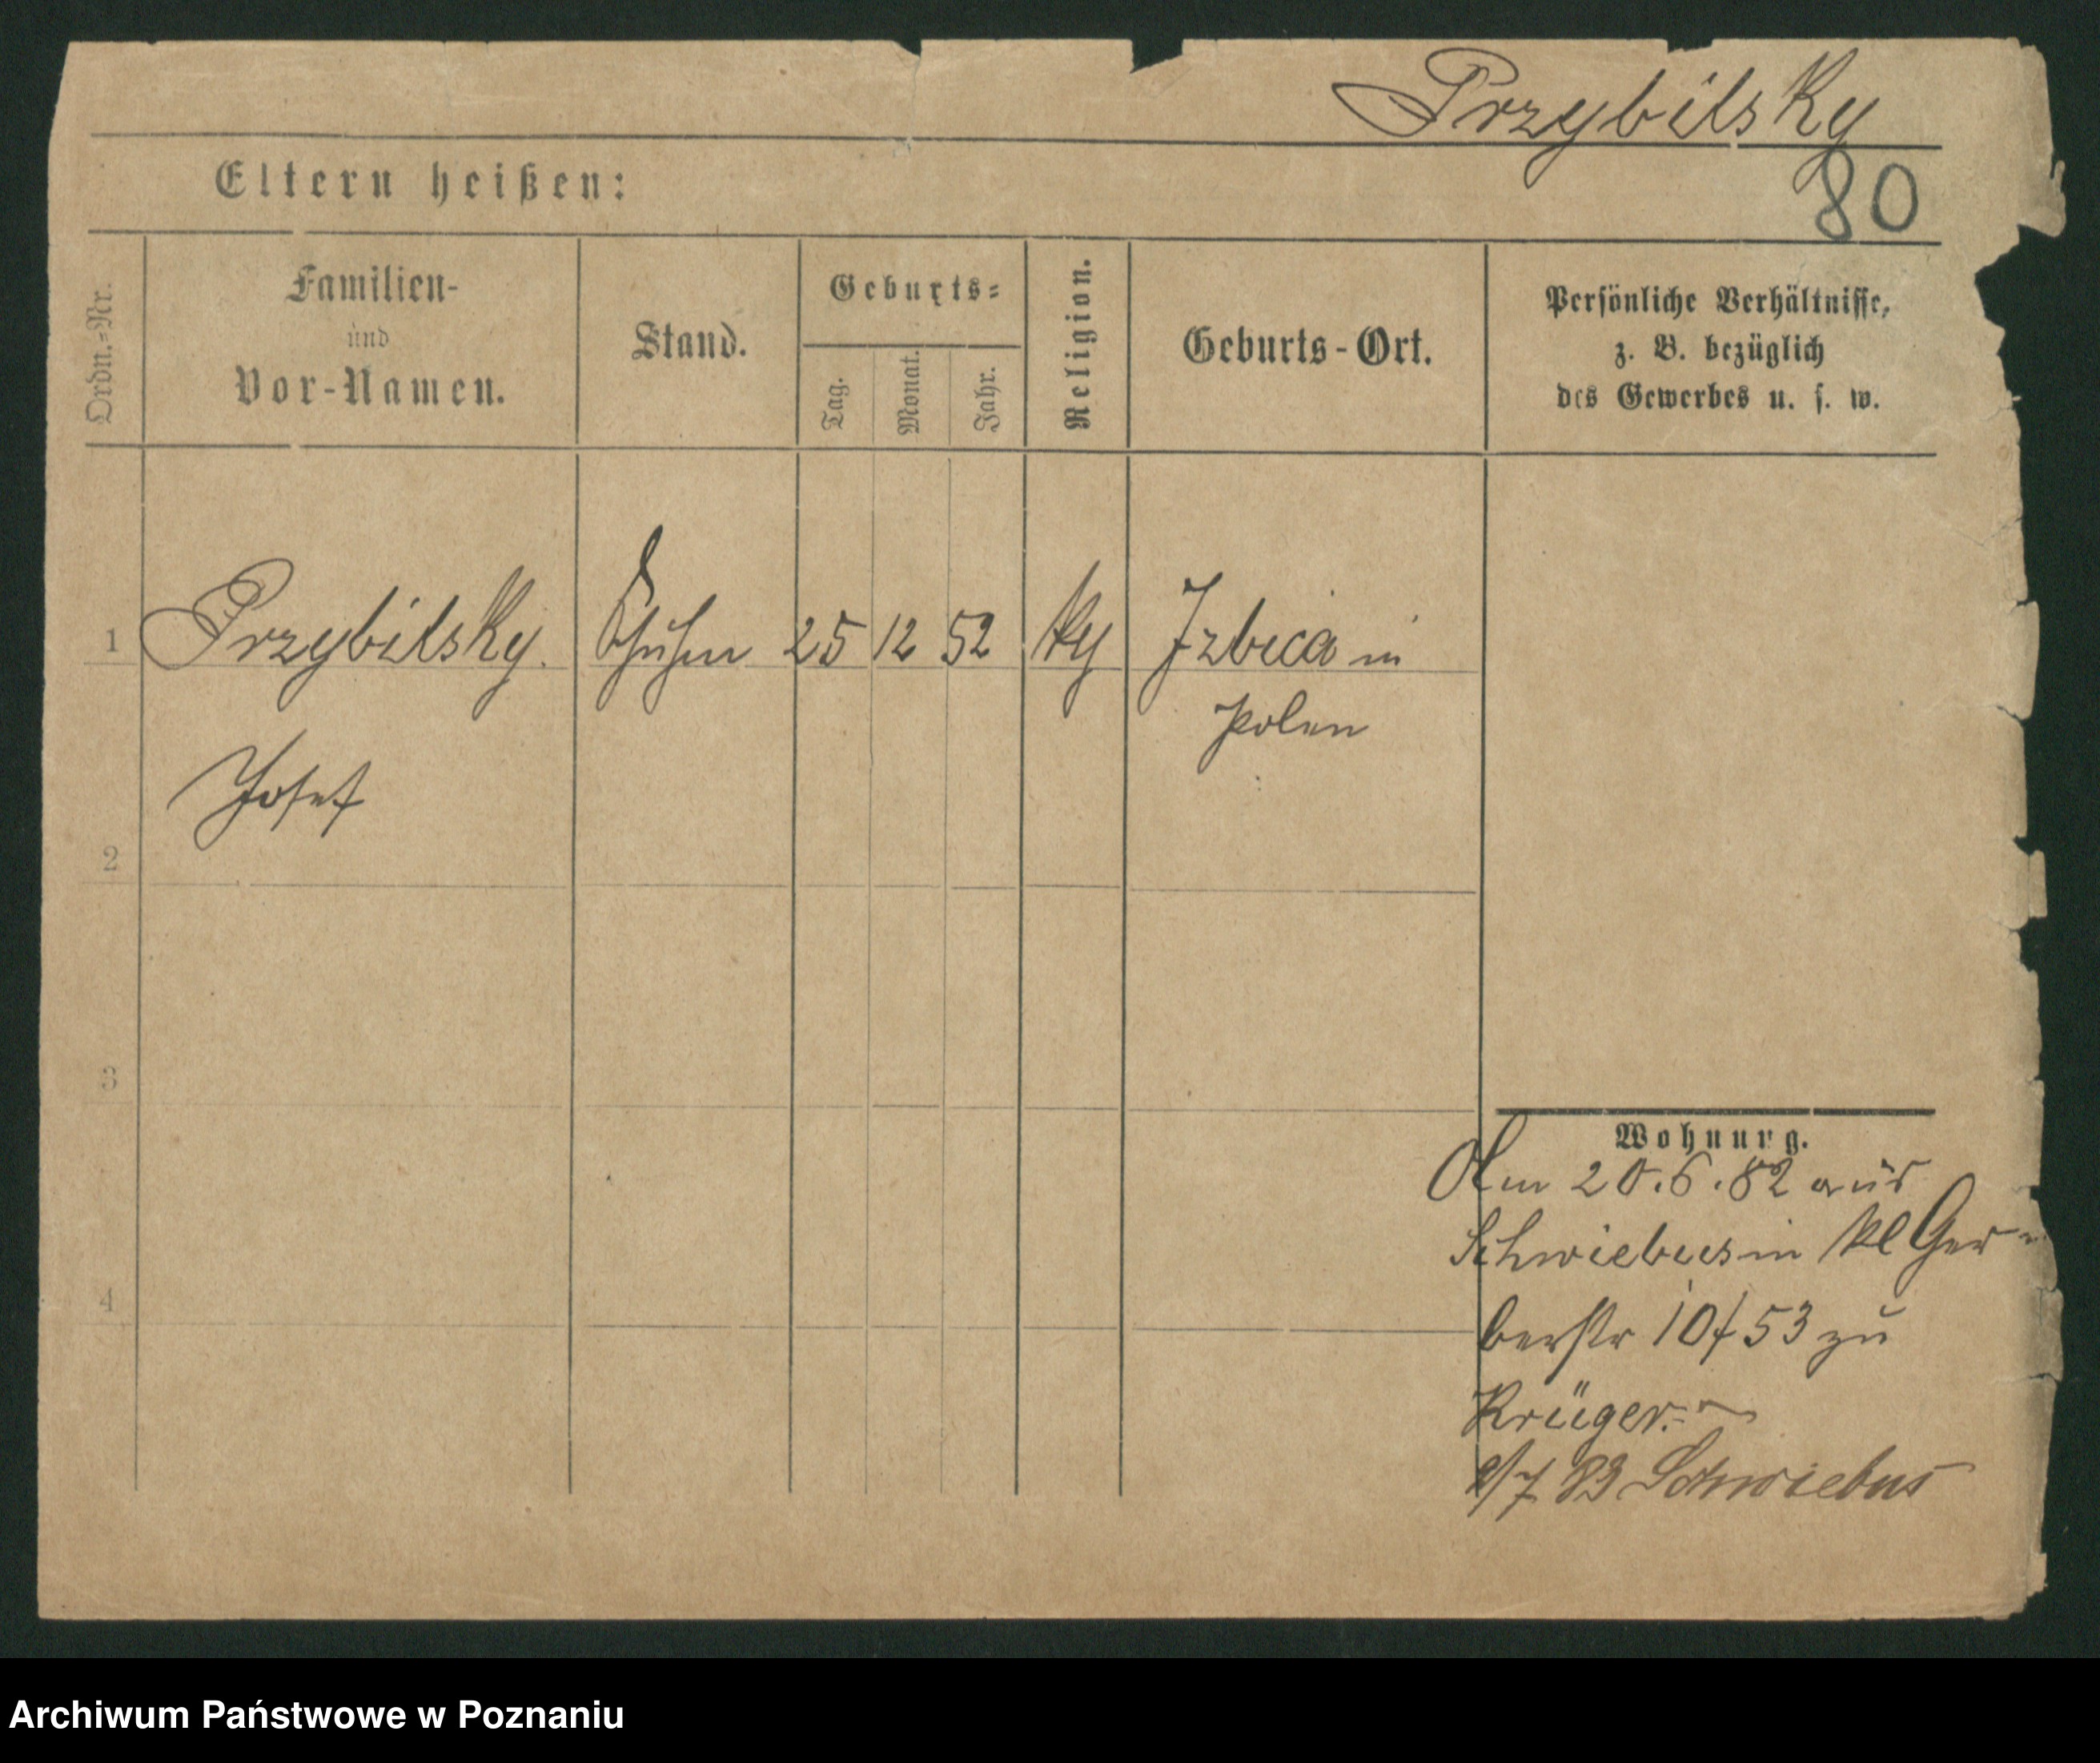 Przybilsky
80
Eltern heißen:
Ordn.-Nr.
Familien-
und
Vor-Namen.
Stand.
Geburts-
Tag.
Monat.
Jahr.
Religion.
Geburts-Ort.
Persönliche Verhältnisse,
z. B. bezüglich
des Gewerbes u. s. w.
1 Przybilsky. 25 12 52 Izbica in
Polen
Josef
2
3
4
Wohnung.
Am 20.6.82 aus
Schwiebus in Kl Ger-
berstr 10/53 zu
Krüger.
/7 83 Schwiebus
Archiwum Państwowe w Poznaniu